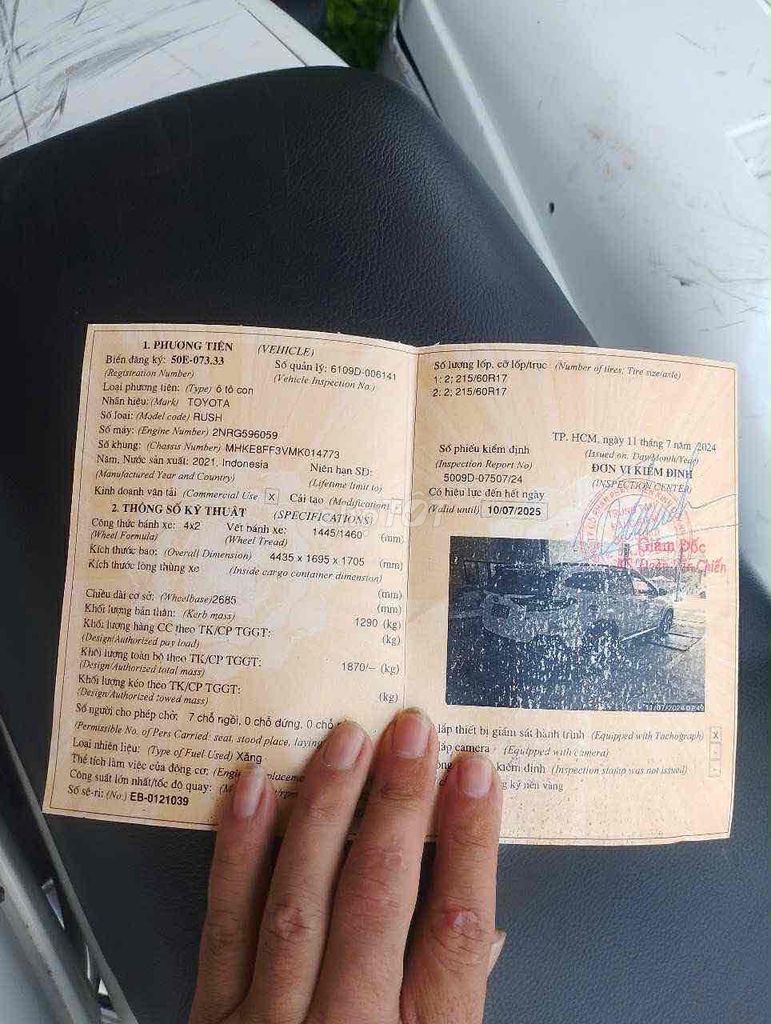 1. PHƯƠNG TIỆN (VEHICLE)
Biển đăng ký: 50E-073.33
(Registration Number)
Số quản lý: 6109D-006141
(Vehicle Inspection No.)
Loại phương tiện: (Type) ô tô con
Nhãn hiệu: (Mark) TOYOTA
Số loại: (Model code) RUSH
Số máy: (Engine Number) 2NRG596059
Số khung: (Chassis Number) MHKE8FF3VMK014773
Năm, Nước sản xuất: 2021, Indonesia
(Manufactured Year and Country)
Niên hạn SD:
(Lifetime limit to)
Kinh doanh vận tải (Commercial Use) X Cải tạo (Modification)
2. THÔNG SỐ KỸ THUẬT (SPECIFICATIONS)
Công thức bánh xe: 4x2
(Wheel Formula)
Vết bánh xe: 1445/1460 (mm)
(Wheel Tread)
Kích thước bao: (Overall Dimension) 4435 x 1695 x 1705 (mm)
Kích thước lòng thùng xe (Inside cargo container dimension)
(mm)
Chiều dài cơ sở: (Wheelbase) 2685 (mm)
Khối lượng bản thân: (Kerb mass) 1290 (kg)
Khối lượng hàng CC theo TK/CP TGGT: (kg)
(Design/Authorized pay load)
Khối lượng toàn bộ theo TK/CP TGGT: 1870/-- (kg)
(Design/Authorized total mass)
Khối lượng kéo theo TK/CP TGGT: (kg)
(Design/Authorized towed mass)
Số người cho phép chở: 7 chỗ ngồi, 0 chỗ đứng, 0 chỗ
(Permissible No. of Pers Carried: seat, stood place, laying
Loại nhiên liệu: (Type of Fuel Used) Xăng
Thể tích làm việc của động cơ:
Công suất lớn nhất/tốc độ quay:
Số sê-ri: (No.) EB-0121039
Số lượng lốp, cỡ lốp/trục (Number of tires; Tire size/axle)
1: 2; 215/60R17
2: 2; 215/60R17
TP. HCM, ngày 11 tháng 7 năm 2024
(Issued on: Day/Month/Year)
Số phiếu kiểm định
(Inspection Report No)
5009D-07507/24
ĐƠN VỊ KIỂM ĐỊNH
(INSPECTION CENTER)
Có hiệu lực đến hết ngày
(Valid until) 10/07/2025
Giám Đốc
11/07/2024
lắp thiết bị giám sát hành trình (Equipped with Tachograph) X
lắp camera (Equipped with camera)
kiểm định (Inspection stamp was not issued)
ký nền vàng